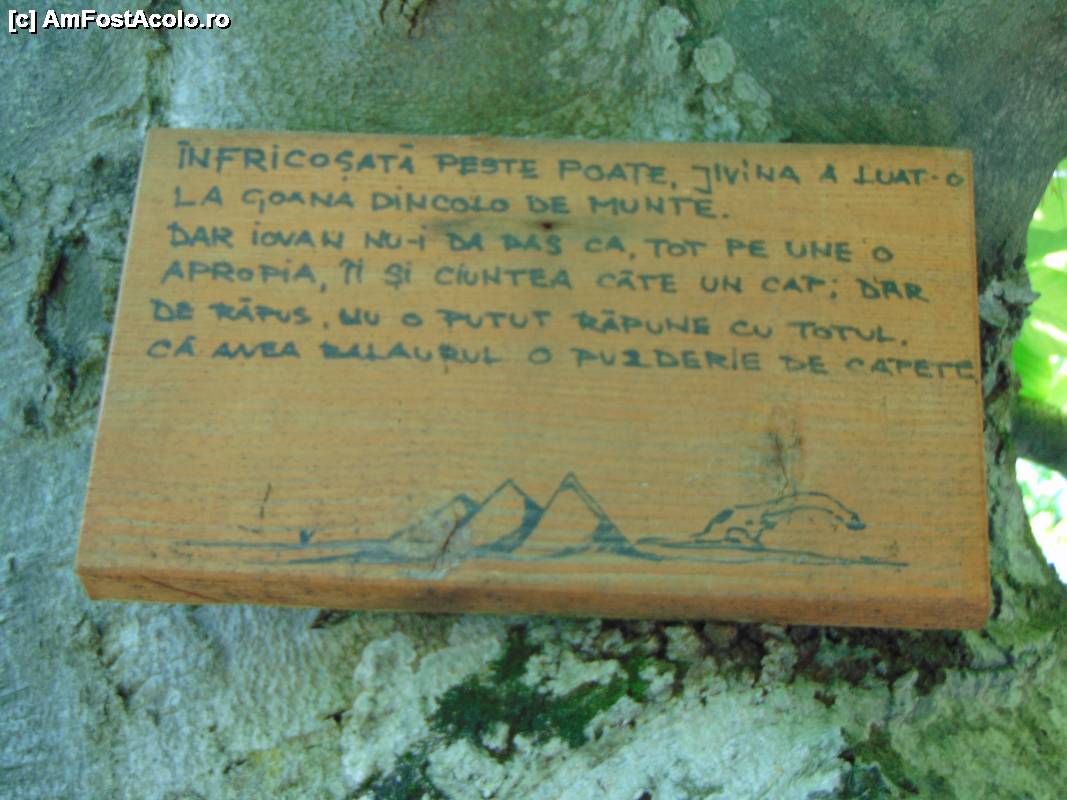 [c] AmFostAcolo.ro
ÎNFRICOȘATĂ PESTE POATE, JIVINA A LUAT-O
LA GOANA DINCOLO DE MUNTE.
DAR IOVAN NU-I DA PAS CA, TOT PE UNE O
APROPIA, ÎI ȘI CIUNTEA CÂTE UN CAP; DAR
DE RĂPUS, NU O PUTUT RĂPUNE CU TOTUL.
CĂ AVEA BALAURUL O PUZDERIE DE CAPETE